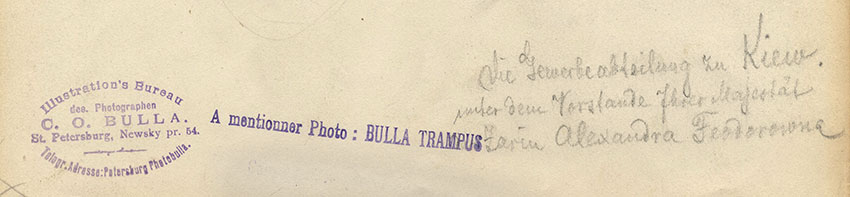 Illustration's Bureau
des Photographen
C. O. BULLA.
St. Petersburg, Newsky pr. 54.
Telegr. Adresse: Petersburg Photobulla.
A mentionner Photo : BULLA TRAMPUS
Die Gewerbeabteilung zu Kiew.
unter dem Vorstande Ihrer Majestät
Zarin Alexandra Feodorowna